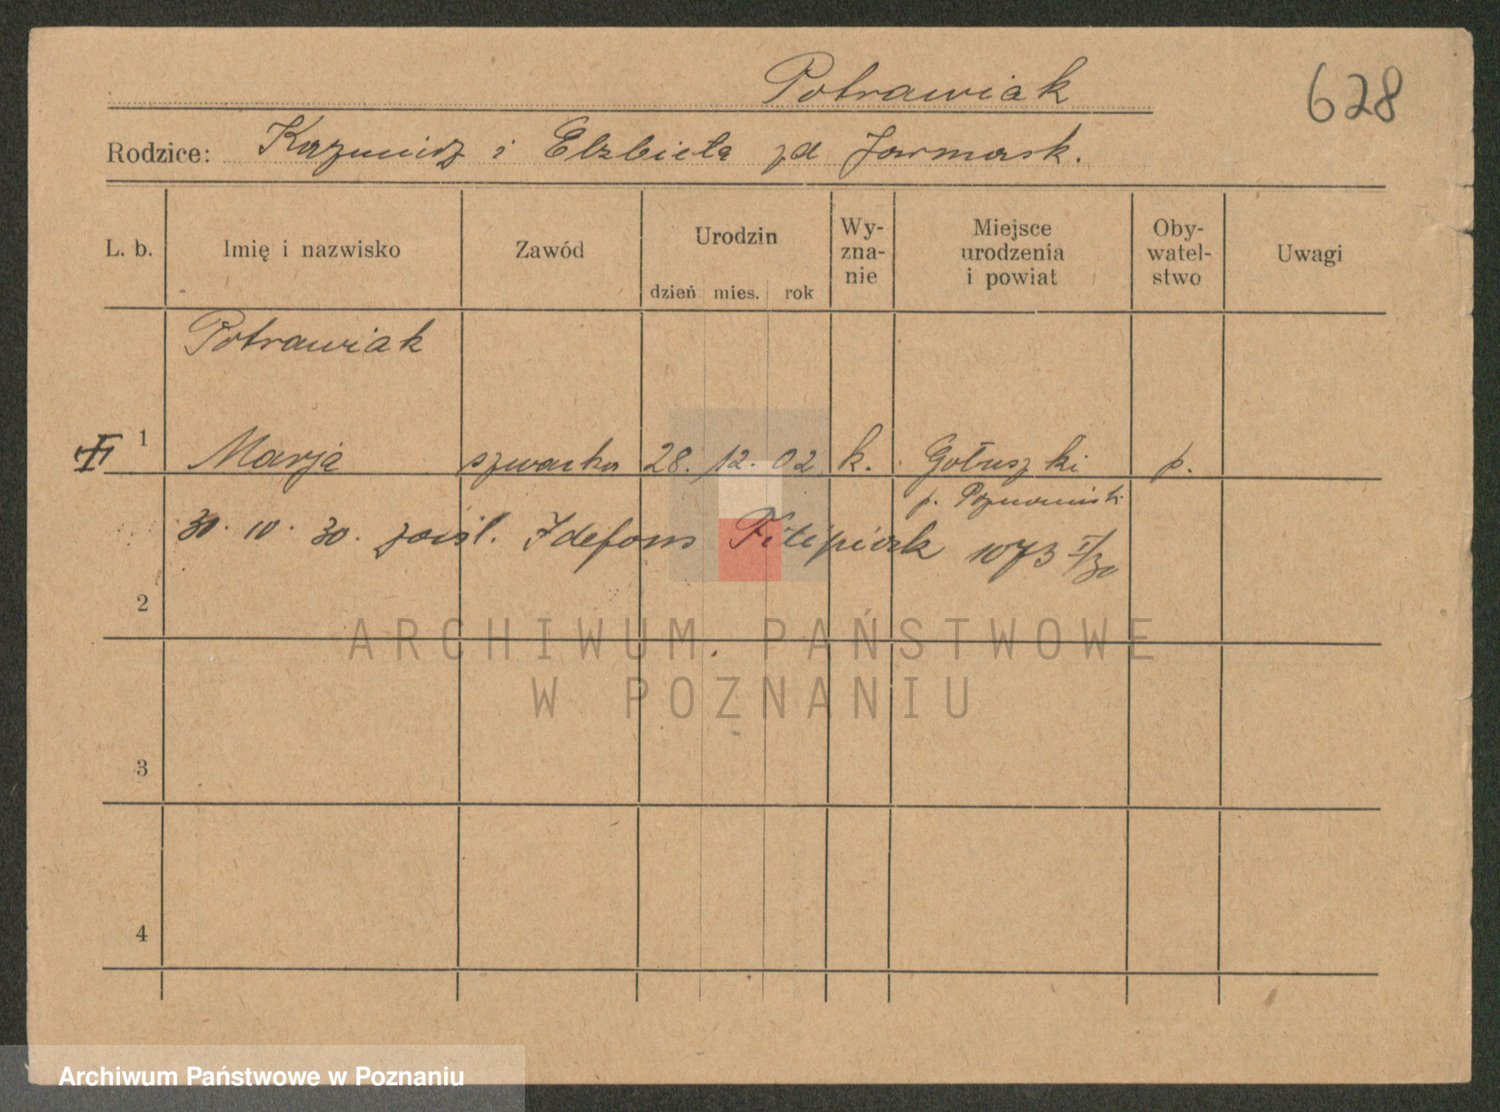 Potrawiak
628
Rodzice: Kazmierz i Elzbieta zd Jarmark.
L. b. Imię i nazwisko Zawód Urodzin dzień mies. rok Wy-zna-nie Miejsce urodzenia i powiat Oby-watel-stwo Uwagi
Potrawiak
1 Marja szwaczka 28. 12. 02 k. Gołuszki p.
p. Poznański
30. 10. 30. zaśl. Idefons Filipiak 1073 I/30
2
ARCHIWUM PAŃSTWOWE
W POZNANIU
3
4
Archiwum Państwowe w Poznaniu